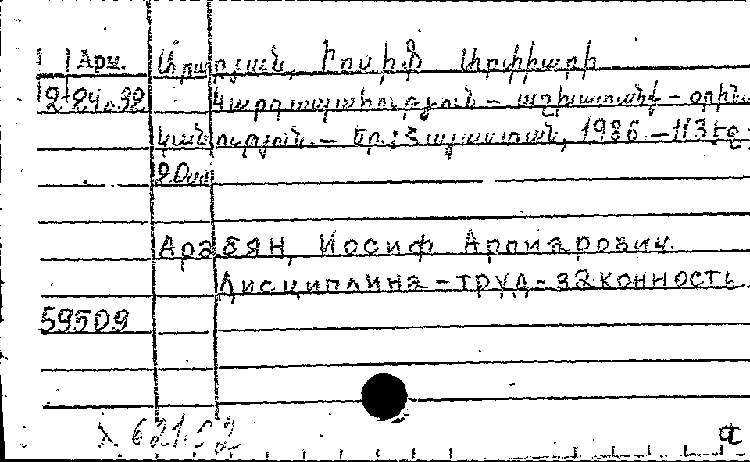 Арм. Արաբյան, Իոսիֆ Արփիարի
2-84.32 Կարգապահություն – աշխատանք – օրինա
կանություն. – Եր.: Հայաստան, 1986 – 113 էջ
20սմ
Арабян, Иосиф Арпиарович
Дисциплина – труд – законность
59509
621.52